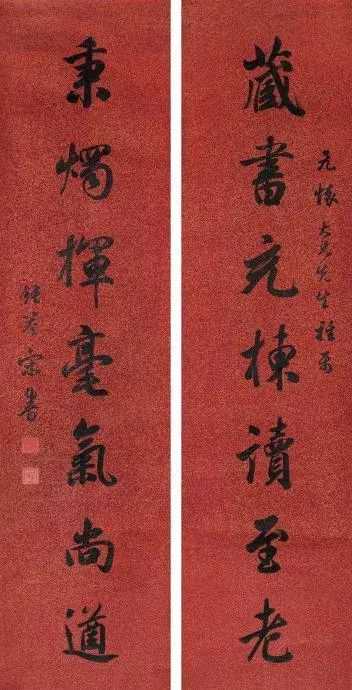 元懷大兄先生雅屬
藏書充棟讀至老
秉燭揮毫氣尚遒
書